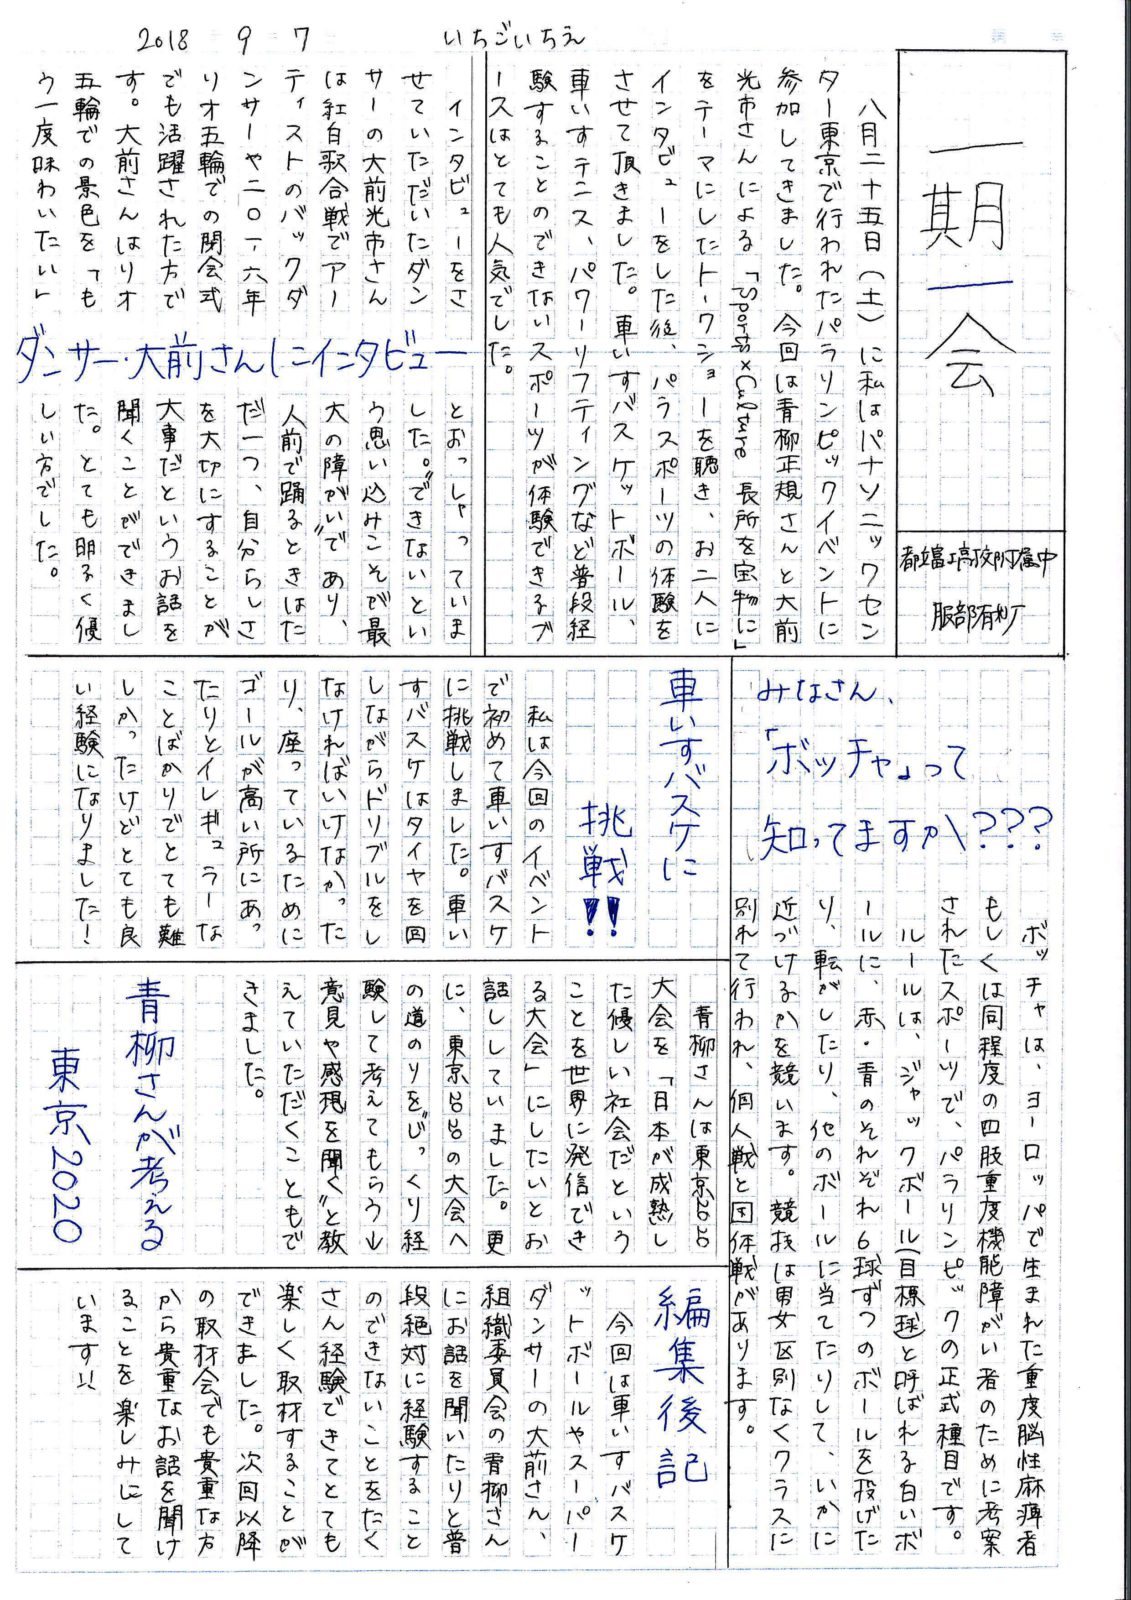 2018 9 7 いちごいちえ
一期一会
都立富士高校附属中
服部有利
八月二十五日（土）に私はパナソニックセン
ター東京で行われたパラリンピックイベントに
参加してきました。今回は青柳正規さんと大前
光市さんによる「Sports×Culture 長所を宝物に」
をテーマにしたトークショーを聴き、お二人に
インタビューをした後、パラスポーツの体験を
させて頂きました。車いすバスケットボール、
車いすテニス、パワーリフティングなど普段経
験することのできないスポーツが体験できるブ
ースはとても人気でした。
ダンサー・大前さんにインタビュー
インタビューをさ
せていただいたダン
サーの大前光市さん
は紅白歌合戦でアー
ティストのバックダ
ンサーや二〇一六年
リオ五輪での閉会式
でも活躍された方で
す。大前さんはリオ
五輪での景色を「も
う一度味わいたい」
とおっしゃっていま
した。"できないとい
う思い込みこそで最
大の障がい"であり、
人前で踊るときはた
だ一つ、自分らしさ
を大切にすることが
大事だというお話を
聞くことができまし
た。とても明るく優
しい方でした。
みなさん、
「ボッチャ」って
知ってますか???
ボッチャは、ヨーロッパで生まれた重度脳性麻痺者
もしくは同程度の四肢重度機能障がい者のために考案
されたスポーツで、パラリンピックの正式種目です。
ルールは、ジャックボール(目標球)と呼ばれる白いボ
ールに、赤・青のそれぞれ6球ずつのボールを投げた
り、転がしたり、他のボールに当てたりして、いかに
近づけるかを競います。競技は男女区別なくクラスに
別れて行われ、個人戦と団体戦があります。
車いすバスケに
挑戦!!
私は今回のイベント
で初めて車いすバスケ
に挑戦しました。車い
すバスケはタイヤを回
しながらドリブルをし
なければいけなかった
り、座っているために
ゴールが高い所にあっ
たりとイレギュラーな
ことばかりでとても難
しかったけどとても良
い経験になりました！
青柳さんが考える
東京2020
青柳さんは東京2020
大会を「日本が成熟し
た優しい社会だという
ことを世界に発信でき
る大会」にしたいとお
話ししていました。更
に、東京2020の大会へ
の道のりを"じっくり経
験して考えてもらう↓
意見や感想を聞く"と教
えていただくこともで
きました。
編集後記
今回は車いすバスケ
ットボールやスーパー
ダンサーの大前さん、
組織委員会の青柳さん
にお話を聞いたりと普
段絶対に経験すること
のできないことをたく
さん経験できてとても
楽しく取材することが
できました。次回以降
の取材会でも貴重な方
から貴重なお話を聞け
ることを楽しみにして
います!!